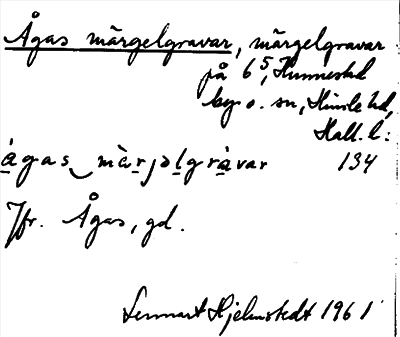 Ågas märgelgravar, märgelgravar
på 6⁵, Hunnestad
by o. sn, Himle hd,
Hall. l:
ágas märjəlgràvar 134
Jfr. Ågas, gd.
Lennart Hjelmstedt 1961